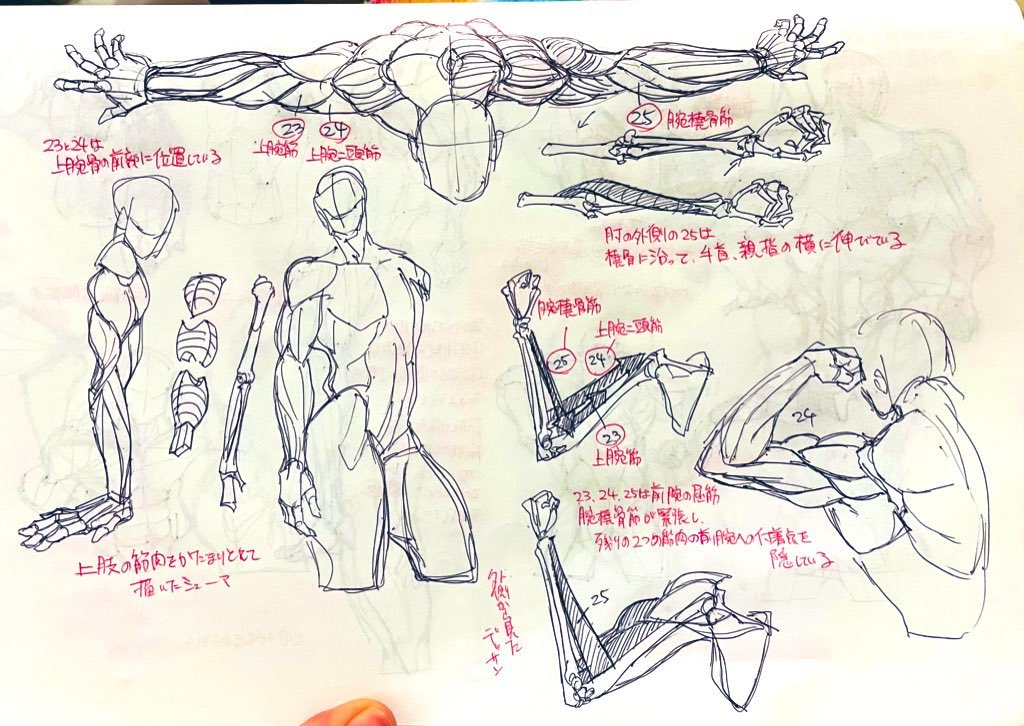 23と24は
上腕骨の前部に位置している
23
上腕筋
24
上腕二頭筋
25
腕橈骨筋
肘の外側の25は
橈骨に沿って、手首、親指の横に伸びている
腕橈骨筋
上腕二頭筋
25
24
23
上腕筋
24
23、24、25は前腕の屈筋
腕橈骨筋が緊張し、
残りの2つの筋肉の前腕への付着点を
隠している
上肢の筋肉をかたまりとして
描いたシューマ
25
外側から見た
デッサン